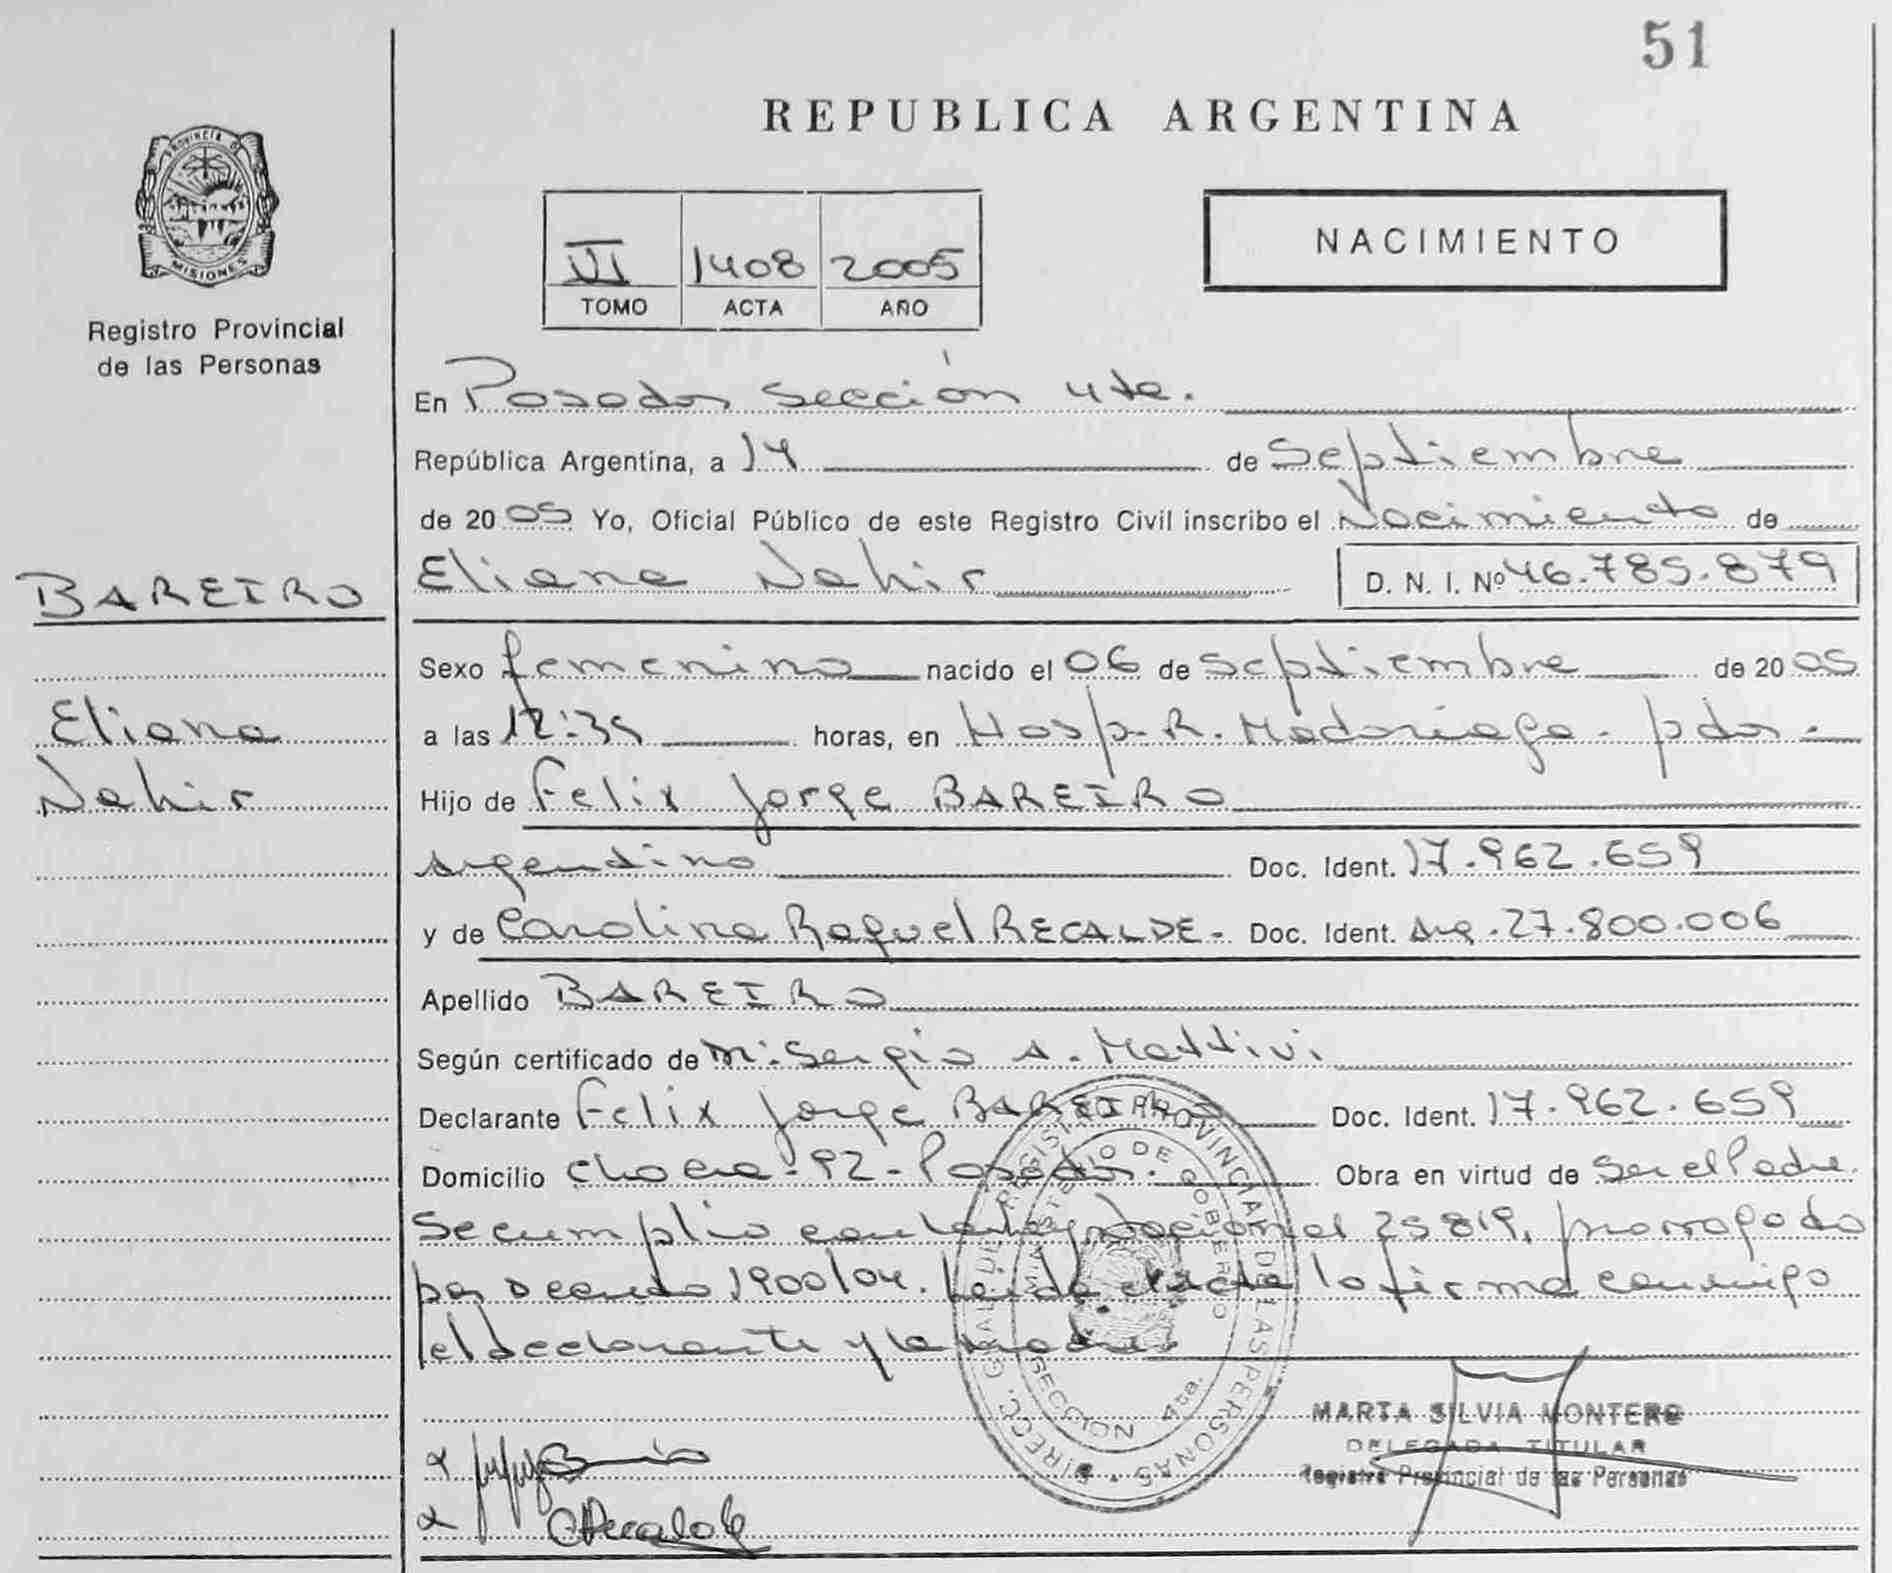 51
REPUBLICA ARGENTINA
PROVINCIA DE
MISIONES
Registro Provincial
de las Personas
VI 1408 2005
TOMO ACTA AÑO
NACIMIENTO
En Posadas Sección 4ta.
República Argentina, a 14 de Septiembre
de 2005 Yo, Oficial Público de este Registro Civil inscribo el Nacimiento de
BAREIRO
Eliana Nahir D. N. I. Nº 46.785.879
Sexo femenino nacido el 06 de Septiembre de 2005
Eliana
Nahir
a las 12:35 horas, en Hosp. R. Madariaga - pdas -
Hijo de Felix Jorge BAREIRO
argentino Doc. Ident. 17.962.659
y de Carolina Raquel RECALDE - Doc. Ident. Arg. 27.800.006
Apellido BAREIRO
Según certificado de Sergio A. Mattivi
Declarante Felix Jorge BAREIRO Doc. Ident. 17.962.659
Domicilio 92 - Posadas. Obra en virtud de Ser el Padre.
Se cumplio con la ley Nacional 25819, prorrogado
por Decreto 1900/04. Leida el acta la firma conmigo
el declarante y la madre.
DIRECC. GRAL DE REGISTRO PROVINCIAL DE LAS PERSONAS
MINISTERIO DE GOBIERNO
SECCION 4ta.
MARTA SILVIA MONTERO
DELEGADA TITULAR
Registro Provincial de las Personas